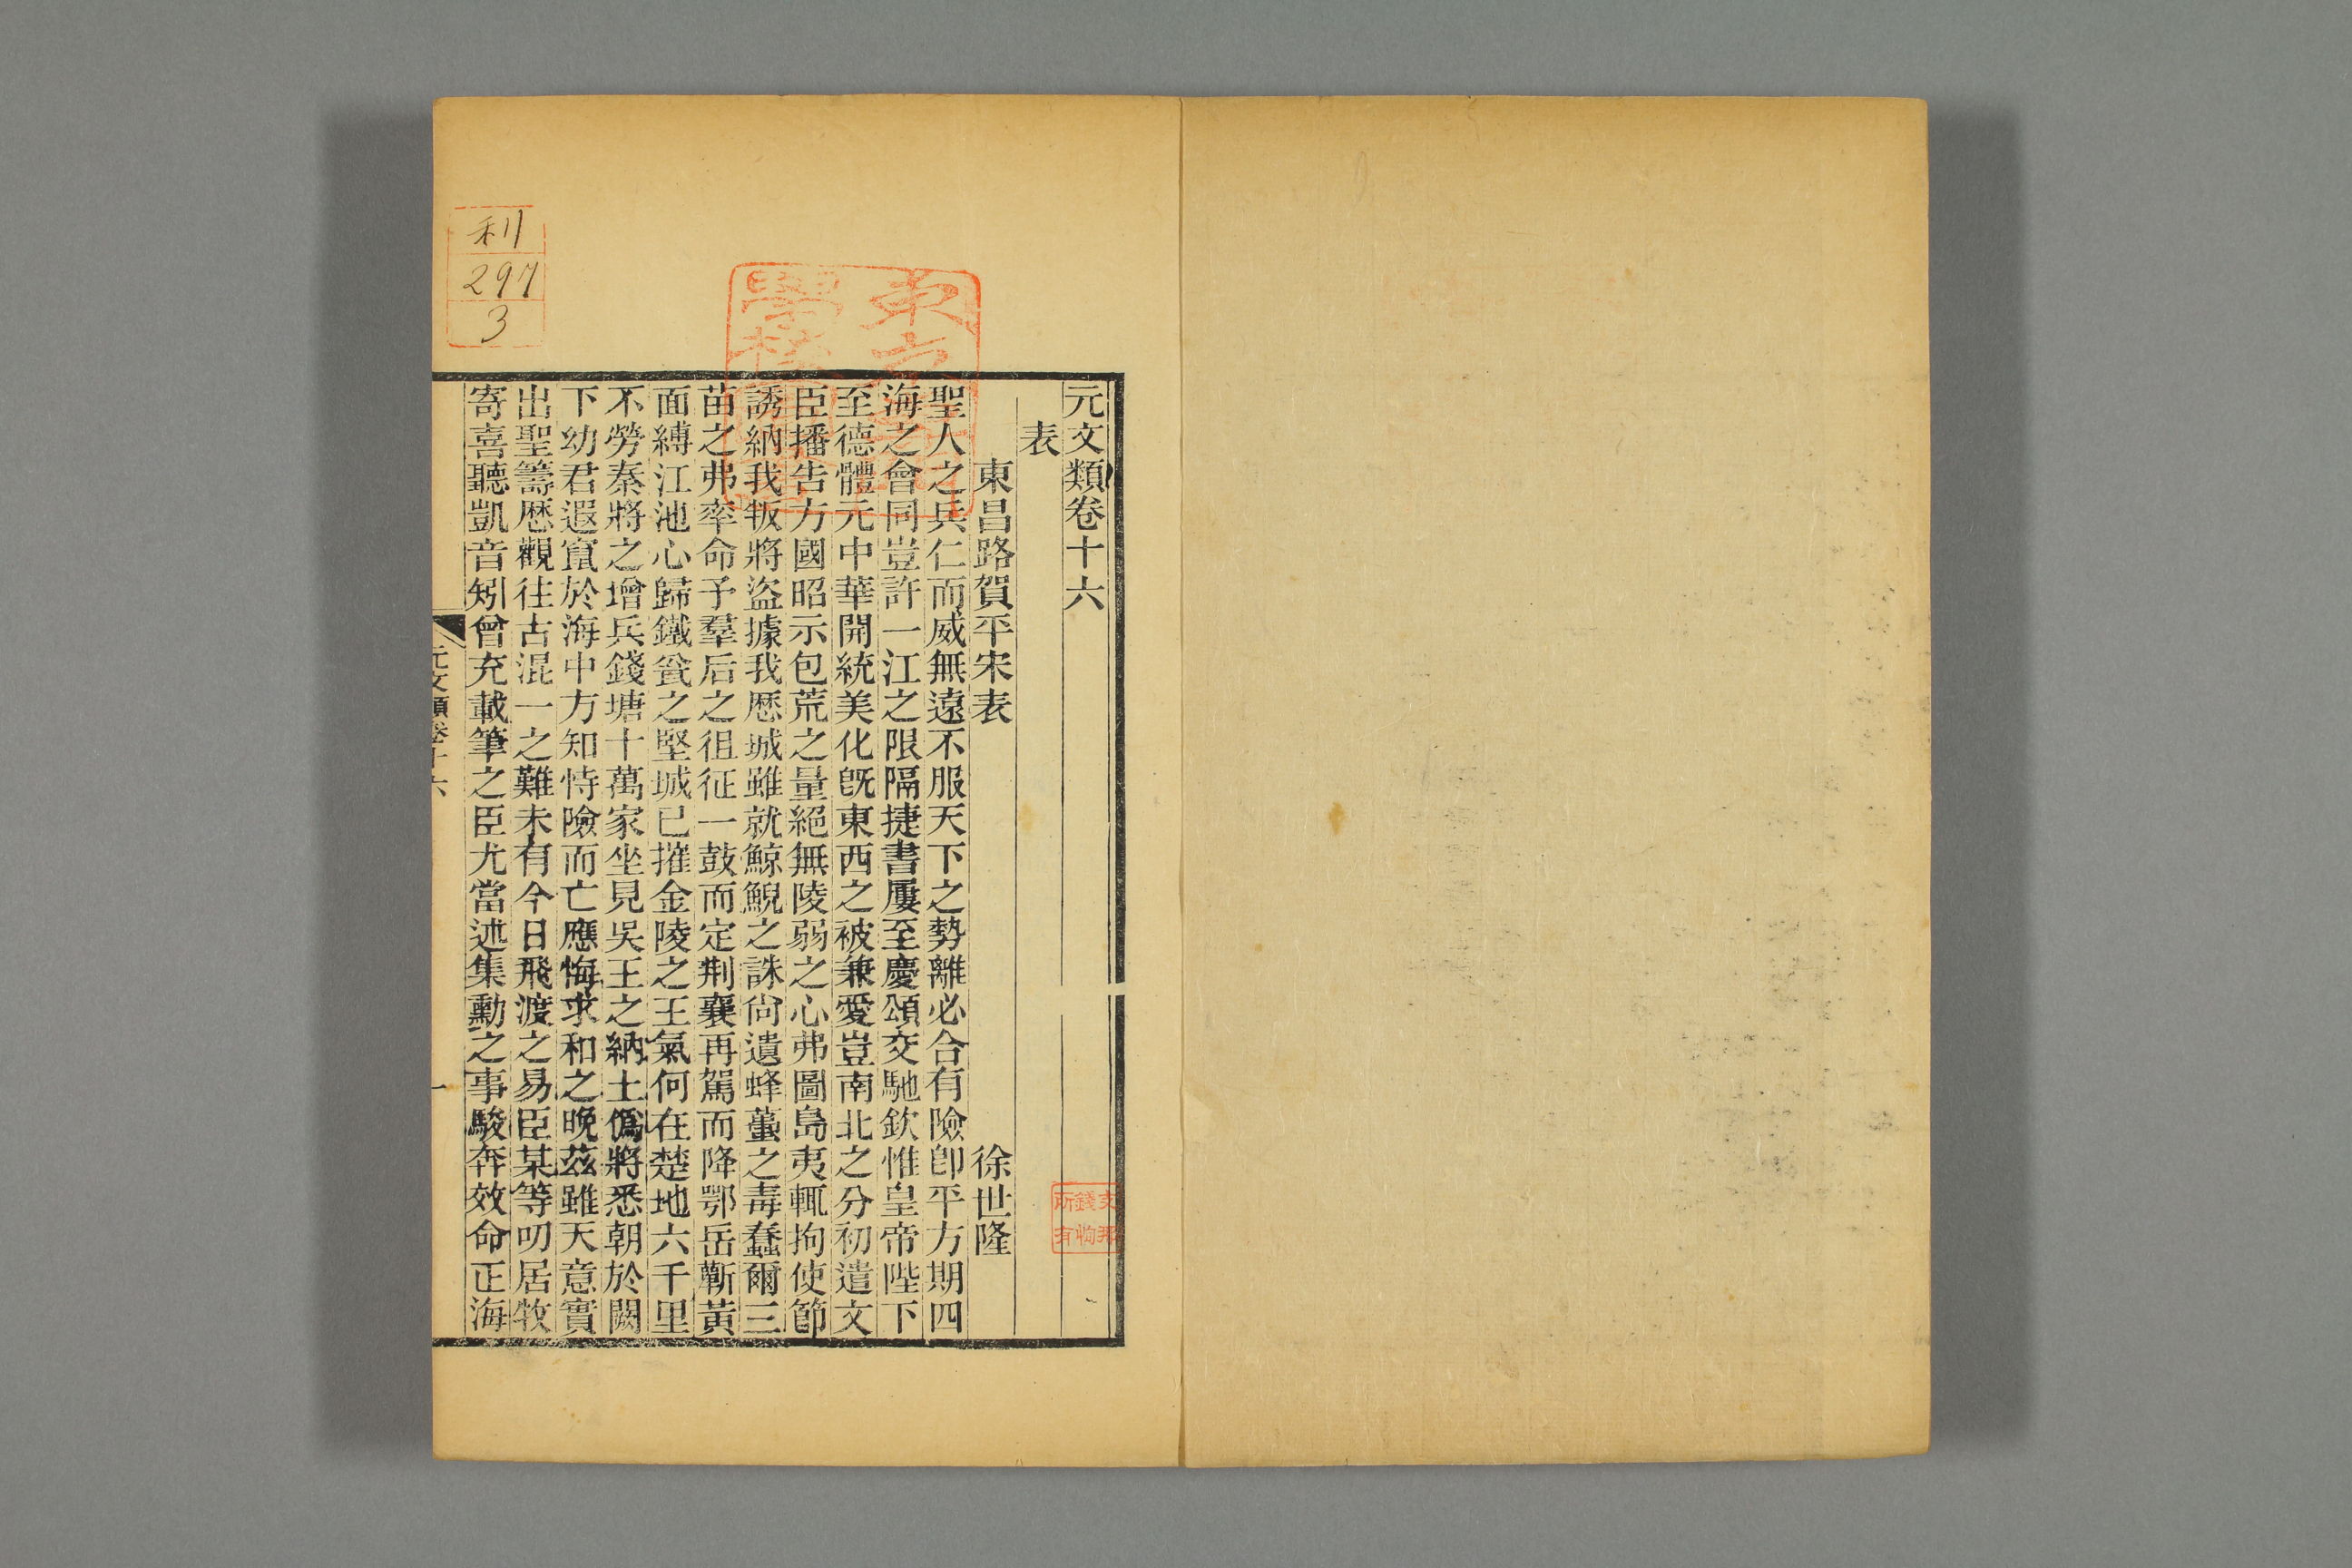 元文類卷十六
表
東昌路賀平宋表 徐世隆
聖人之兵仁而威無遠不服天下之勢離必合有險卽平方期四
海之會同豈許一江之限隔捷書屢至慶頌交馳欽惟皇帝陛下
至德體元中華開統美化旣東西之被兼愛豈南北之分初遣文
臣播告方國昭示包荒之量絕無陵弱之心弗圖島夷輒拘使節
誘納我叛將盜據我歷城雖就鯨鯢之誅尙遺蜂蠆之毒蠢爾三
苗之弗率命予羣后之徂征一鼓而定荆襄再駕而降鄂岳蘄黃
面縛江池心歸鐵瓮之堅城已摧金陵之王氣何在楚地六千里
不勞秦將之增兵錢塘十萬家坐見吳王之納土僞將悉朝於闕
下幼君遐竄於海中方知恃險而亡應悔求和之晚茲雖天意實
出聖籌厯觀往古混一之難未有今日飛渡之易臣某等叨居牧
寄喜聽凱音矧曾充載筆之臣尤當述集勳之事駿奔效命正海
元文類卷十六 一
利
297
3
東方
學校
支那
錢恂
所有